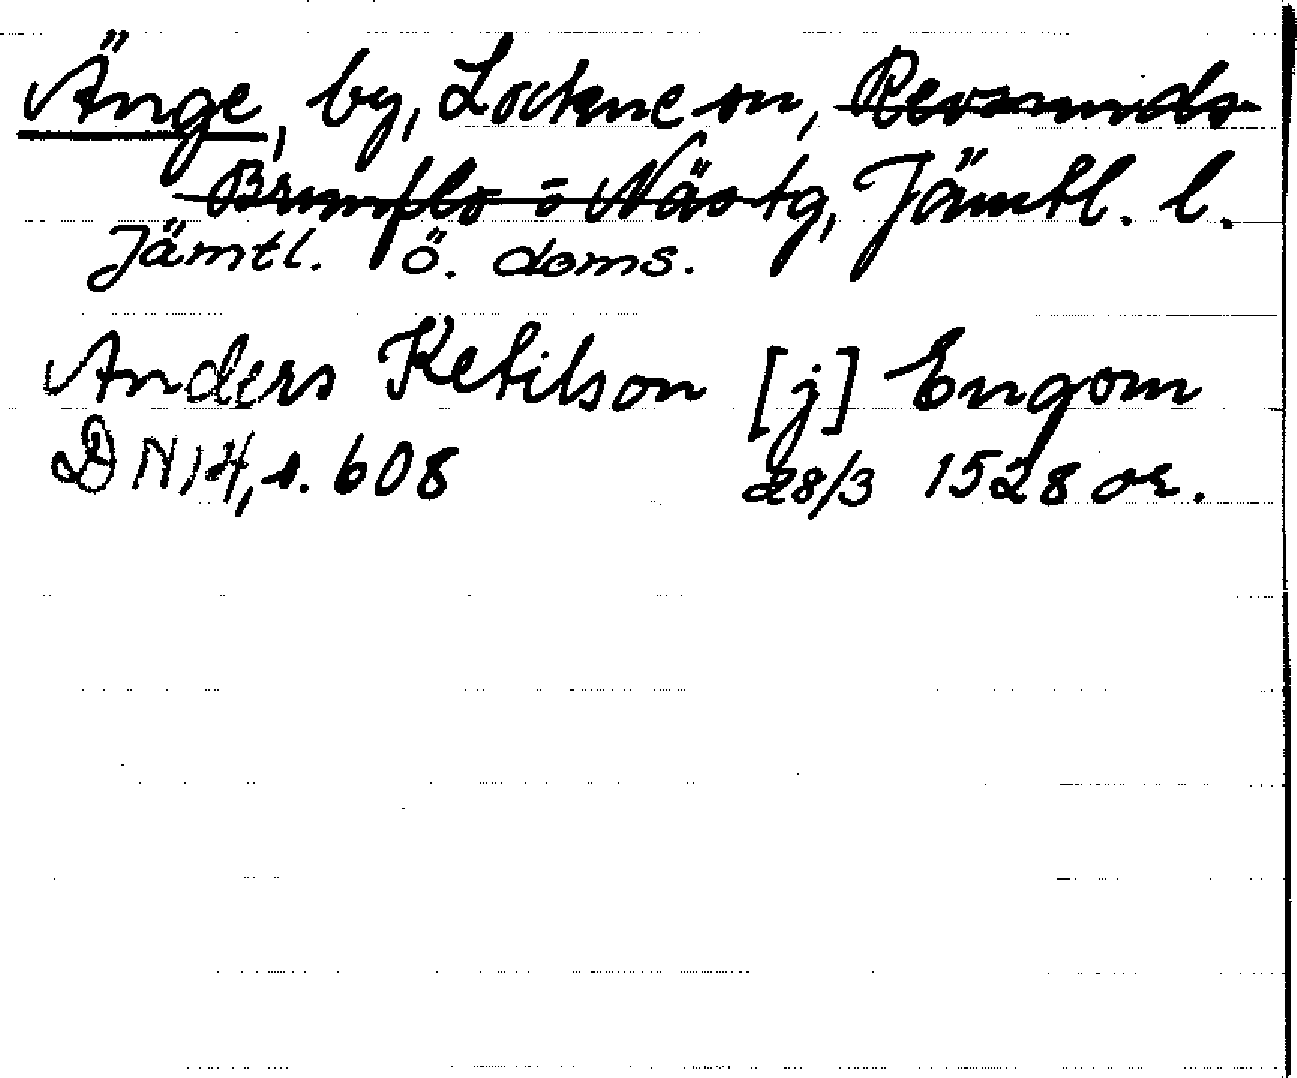 Änge, by, Lockne sn, Revsunds
Brunflo o Näs tg, Jämtl. l.
Jämtl. ö. doms.
Anders Ketilson [j] Engom
DN 14, s. 608 28/3 1528 or.